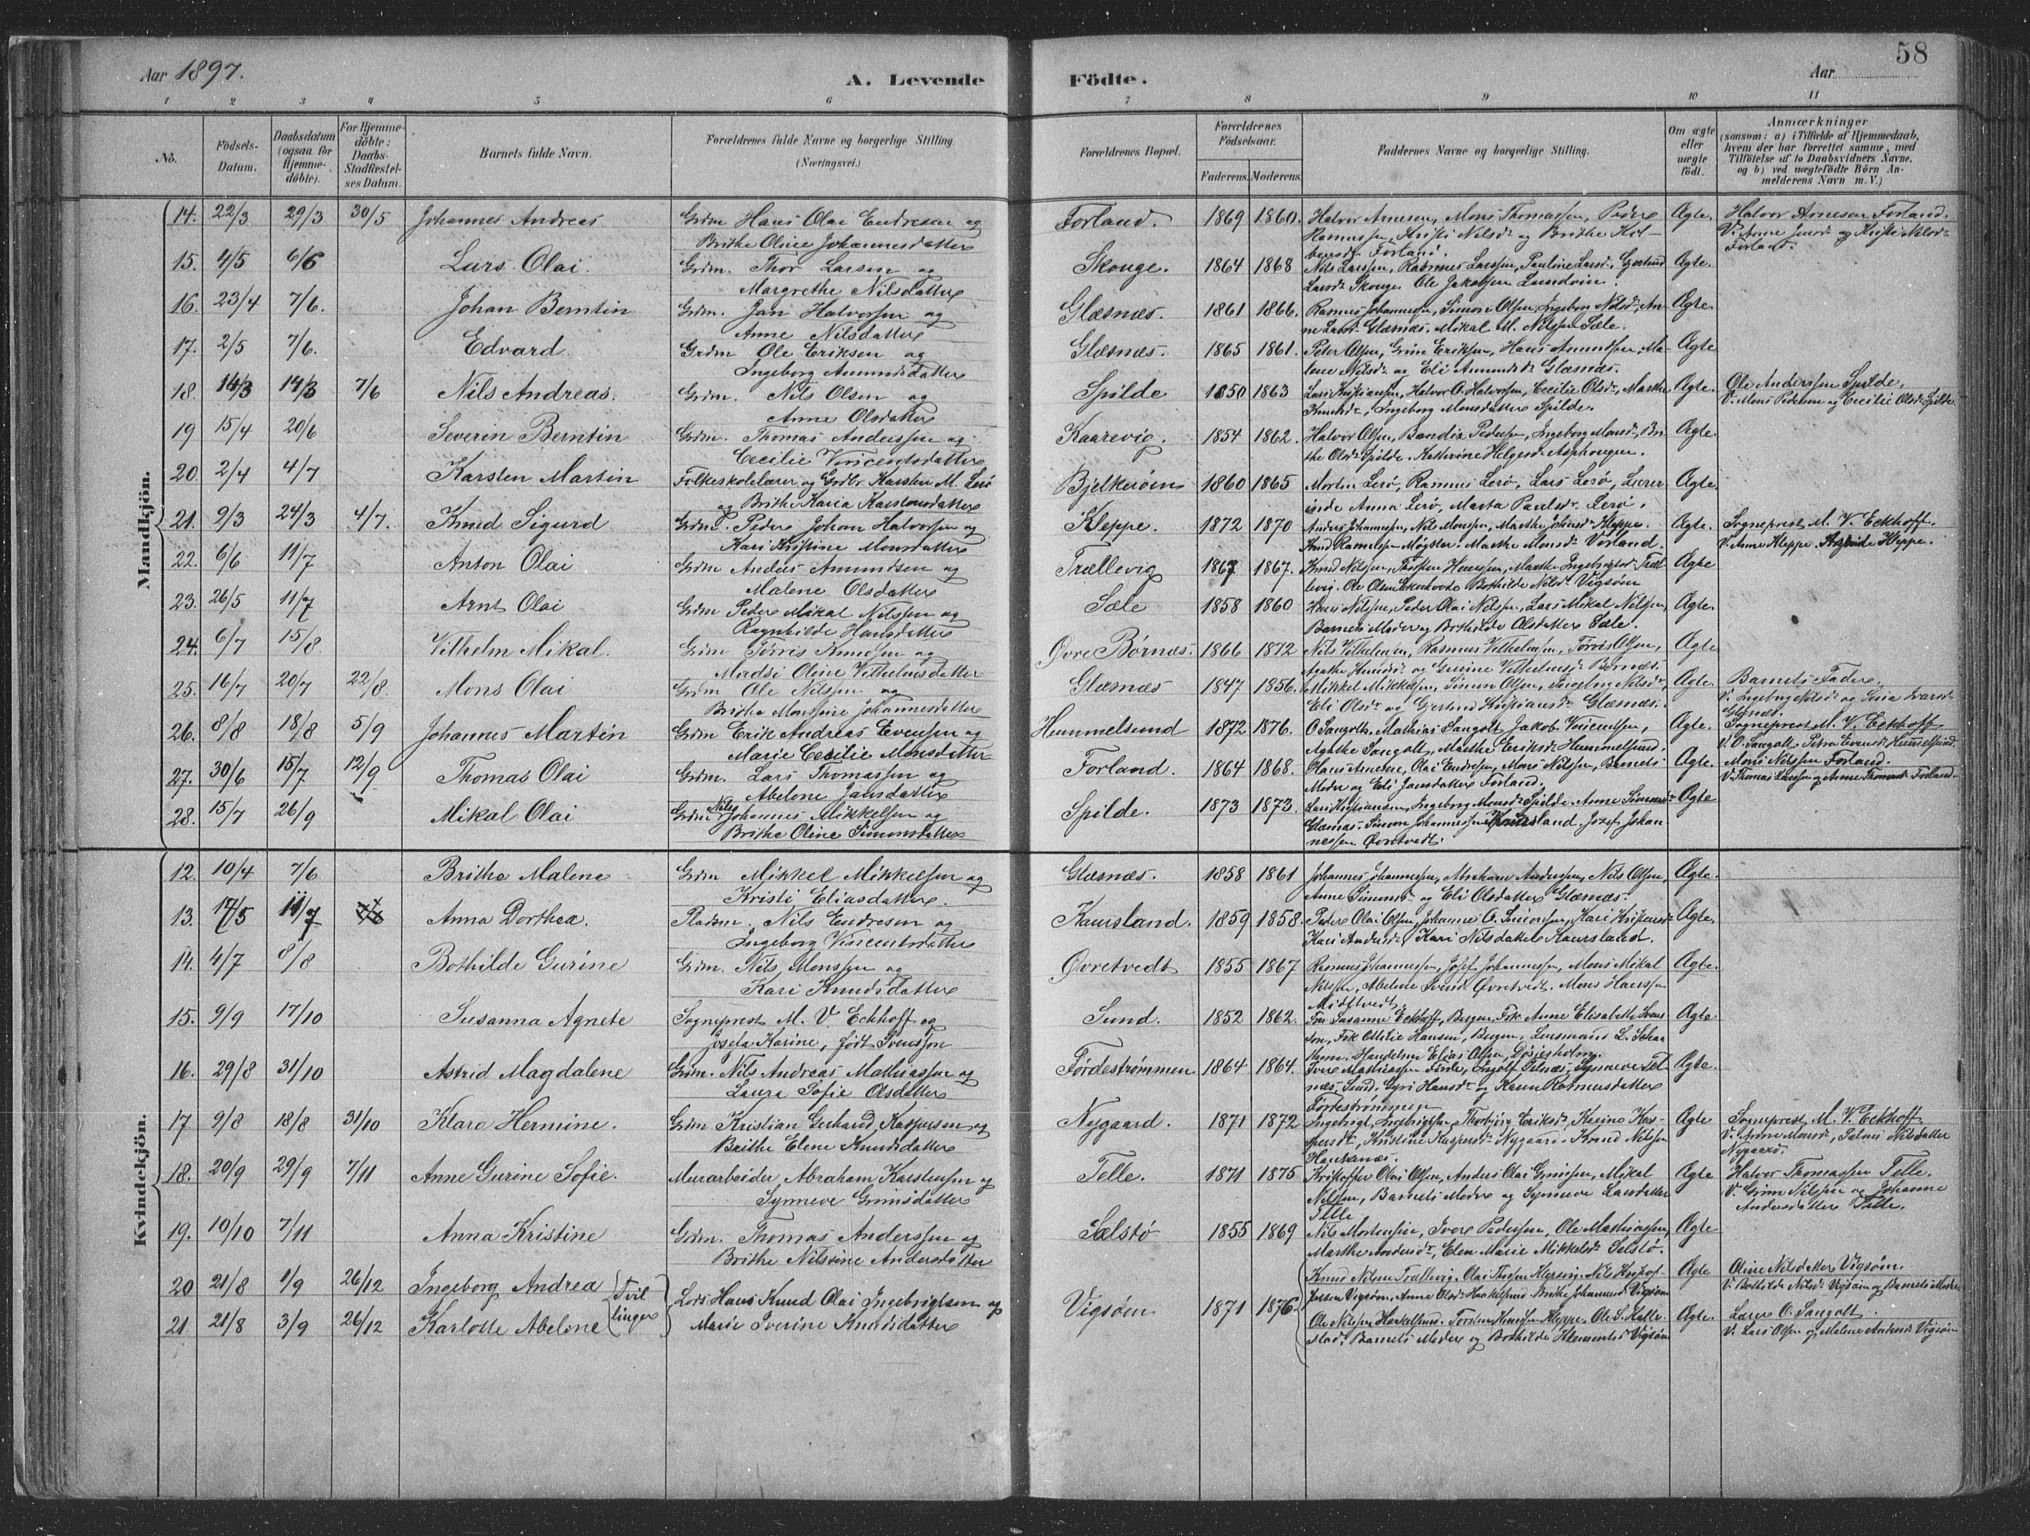 58
Aar 1897.
A. Levende Födte.
Aar
1 2 3 4 5 6 7 8 9 10 11
No.
Födsels-Datum.
Daabsdatum (ogsaa for Hjemme-döbte).
For Hjemme-döbte: Daabs-Stadfæstel-ses Datum.
Barnets fulde Navn.
Forældrenes fulde Navne og borgerlige Stilling. (Næringsvei.)
Forældrenes Bopæl.
Forældrenes Födselsaar. Faderens. Moderens.
Faddernes Navne og borgerlige Stilling.
Om ægte eller uægte födt.
Anmærkninger (saasom: a) i Tilfælde af Hjemmedaab, hvem der har forrettet samme, med Tilföielse af to Daabsvidners Navne, og b) ved uægtefödte Börn An-melderens Navn m. V.)
Mandkjön.
14. 22/3 29/3 30/5 Johannes Andreas Grdm Hans Olai Endresen og Forland. 1869 1860. Halvor Arnesen, Mons Thomassen, Peder Ægte. Halvor Arnesen Forland.
Brithe Oline Johannesdatter Rasmussen, Kristi Nilsd. og Brithe Forland.
15. 4/5 6/6 Lars Olai. Grdm. Thor Larsen og Skouge. 1864 1868 Nils Larssen, Rasmus Larssen, Pauline Larsd. Gjertrud Ægte.
Margrethe Nilsdatter Larsd. Skouge. Ole Jakobsen
16. 23/4 7/6. Johan Berntin Grdm. Jan Halvorsen og Glæsnæs. 1861 1866. Rasmus Johannessen, Simon Olsen, Ingeborg Nilsd. An- Ægte
Anne Nilsdatter ne Larsd. Glæsnæs. Mikal M. Nilssen Sæle.
17. 2/5 7/6. Edvard Grdm. Ole Eriksen og Glæsnæs. 1865 1861. Peter Olsen, Grim Eriksen, Hans Amundsen, Ma- Ægte
Ingeborg Amundsdatter lene Nilsd. og Eli Amundsd. Glæsnæs.
18. 14/3 14/3 7/6 Nils Andreas. Grdm. Nils Olsen og Spilde 1850 1863 Lars Kristiansen, Halvor O. Halvorsen, Cecilie Olsd., Marthe Ægte. Ole Anderssen Spilde.
Anne Olsdatter Knudsd., Ingeborg Monsdatter Spilde. V. Mons Pedersen og Cecilie Olsd. Spilde.
19 15/4 20/6 Severin Berntin Grdm. Thomas Anderssen og Kaarevig. 1854 1862. Halvor Olsen, Bendix Pedersen, Ingeborg Monsd., Bri- Ægte.
Cecilie Vincentsdatter the Olsd. Spilde. Kathrine Helgesd.
20. 2/4 4/7 Karsten Martin Folkeskolelærer og Grdbr. Karsten M. Lerö Bjelkeröen 1860 1865 Morten Lerø, Rasmus Lerø, Lars Lerø, Lærer Ægte.
og Brithe Karia Karstensdatter Anna Lerø, Marta Paulsd. Lerø.
21. 9/3 24/3 4/7. Knud Sigurd Grdm. Peder Johan Halvorsen og Kleppe. 1872 1870 Anders Johannesen, Nils Monsen, Marthe Johnsd. Kleppe. Ægte. Sogneprest M. V. Eckhoff.
Kari Kristine Monsdatter Knud Rasmussen Møgster. Marthe Monsd. Vorland. V. Anne Kleppe. Kleppe.
22. 6/6 11/7 Anton Olai Grdm Anders Amundsen og Trællevig 1867 1867. Knud Nilsen, Thorsten Hanssen, Marthe Ingebrigtsd. Træl- Ægte
Malene Olsdatter levig. Ole Olsen Bothilde Nilsd. Vigsöen
23. 26/5 11/7 Arnt Olai Grdm. Peder Mikal Nilssen og Sæle 1858 1860 Hans Nilssen, Peder Olai Nilssen, Lars Mikal Nilssen, Ægte.
Ragnhilde Hansdatter Barnets Moder og Bothilde Olsdatter Sæle.
24. 6/7 15/8. Vilhelm Mikal. Grdm Torris Knudsen og Øvre Børnæs. 1866 1872 Nils Vilhelmsen, Rasmus Vilhelmsen, Torris Olsen, Ægte
Madsi Oline Vilhelmsdatter Agathe Knudsd. og Gurine Vilhelmsd. Børnæs.
25. 16/7 20/7 22/8. Mons Olai Grdm Ole Nilssen og Glæsnæs 1847 1856. Mikkel Mikkelsen, Simon Olsen, Ingeborg Nilsd., Ægte. Barnets Fader.
Brithe Monsine Johannesdatter Eli Olsd. og Gjertrud Kristiansd. Glæsnæs. V. Ingeborg Nilsd. og Glæsnæs.
26. 8/8 18/8 5/9 Johannes Martin Grdm Erik Andreas Evensen og Hummelsund 1872 1876. O. Sangolt, Mathias Sangolt, Jakob Vincentsen, Ægte. Sogneprest M. V. Eckhoff
Marie Cecilie Monsdatter Agathe Sangolt, Marthe Eriksd. Hummelsund. V. O. Sangolt. Petra Evensd. Hummelsund.
27. 30/6 15/7 12/9. Thomas Olai Grdm. Lars Thomassen og Forland. 1864 1868. Olai Endresen, Mons Nilssen, Barnets Ægte. Mons Nilssen Forland.
Abelone Jansdatter Moder og Eli Jansdatter Forland. V. Thomas Larssen og Anne Thomasd. Forland.
28. 15/7 26/9 Mikal Olai Grdm Nils Johannes Mikkelsen og Spilde. 1873 1873. Lars Kristiansen, Ingeborg Monsd. Spilde. Anne Simonsd. Ægte
Brithe Oline Simonsdatter Glæsnæs. Simon Johannessen Kaursland. Josef Johan-
nessen Øvretvedt.
Kvindekjön.
12. 10/4 7/6 Brithe Malene Grdm Mikkel Mikkelsen og Glæsnæs. 1858 1861 Johannes Johannessen, Abraham Anderssen, Nils Olsen, Ægte.
Kristi Eliasdatter. Anne Simonsd. og Eli Olsdatter Glæsnæs.
13. 17/5 11/7 Anna Dorthea. Pladsm. Nils Endresen og Kaursland. 1859 1858. Peder Olai Olsen, Johannes O. Simonsen, Kari Kristiansd. Ægte.
Ingeborg Vincentsdatter Kari Andersd., Kari Nilsdatter Kaursland.
14. 4/7 8/8 Bothilde Gurine Grdm. Nils Monssen og Øvretvedt 1855 1867 Rasmus Johannessen, Josef Johannessen, Mons Mikal Ægte.
Kari Knudsdatter Nilssen, Abelone Øvretvedt. Mons Hanssen
Midtvedt.
15. 9/9 17/10 Susanna Agnete Sogneprest M. V. Eckhoff og Sund. 1852 1862. Fru Susanne Eckhoff, Bergen, Frk. Anne Elisabeth Svens- Ægte
Josefa Karine, født Svensson son, Frk. Ottilie Hansen, Bergen, Lensmand L. Skaa-
16. 29/8 31/10 Astrid Magdalene Grdm. Nils Andreas Mathiassen og Førdestrømmen 1864 1864. Iver Mathiassen Førde, Ingolf Telnæs, Synneve Tel- Ægte.
Laura Sofie Olsdatter næs, Sund. Siri Hansd. og Karen Rasmusdatter
Førdestrømmen
17 9/8 18/8 31/10 Klara Hermine. Grdm. Kristian Gerhard Kaspersen og Nygaard. 1871 1872 Ingebrigt Ingebrigtsen, Thorbjørg Eriksd., Karine Kas- Ægte Sogneprest M. V. Eckhoff
Brithe Elene Knudsdatter persd., Kristine Kaspersd. Nygaard. Knud Nilsen Nygaard.
Haaksnæs.
18. 20/9 29/9 7/11 Anne Gurine Sofie. Murarbeider Abraham Karstensen og Telle. 1871 1875 Kristoffer Olai Olsen, Anders Olai Grimssen, Mikal Ægte Halvor Thomassen Telle.
Synneve Grimsdatter Nilsen, Barnets Moder og Synneve Larsdatter V. Grim Nilssen og Johanne
Telle Andersdatter Telle.
19. 10/10 7/11 Anna Kristine Grdm. Thomas Anderssen og Sælstø 1855 1869 Nils Mortensen, Iver Pedersen, Ole Mathiassen, Ægte
Brithe Nilsine Andersdatter Marthe Andersd., Elen Marie Mikkelsd. Selstø.
20 21/8 1/9 26/12 Ingeborg Andrea { Tvil Løds Hans Knud Olai Ingebrigtsen og Vigsøen 1871 1876 Knud Nilsen Trællevig, Nils Kristof- Ægte Oline Nilsdatter Vigsøen.
fersen Vigsøen, Anne Olsd. Brithe Johannesd. Vigsøen V. Bothilde Nilsd. Vigsøen og Barnets Moder
21 21/8 3/9 26/12 Karlotte Abelone linger Marie Severine Knudsdatter Ole Nilsen Torsten Hansen Kleppe, Ole S. Ægte. Lærer O. Sangolt.
Barnets Moder og Bothilde Vigsøen V. Lars Olsen og Malene Andersd. Vigsøen